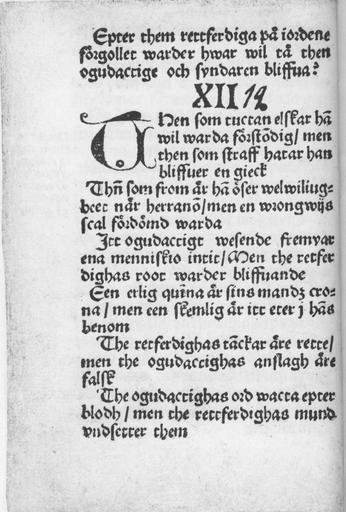 Epter them rettferdiga på iordene
förgollet warder hwar wil tå then
ogudactige och syndaren bliffua?
XII 12
THen som tuctan elskar hā
wil warda förstōdig / men
then som straff hatar han
bliffuer en gieck
Thn̄ som from är hā öser welwiliug-
heet når herranō / men en wrongwijs
scal fördömd warda
Itt ogudactigt wesende fremyar
ena menniskio intit / Men the retfer
dighas root warder bliffuande
Een erlig quīna är sins mandz cro-
na / men een skemlig är itt eter j hās
benom
The retferdighas tāckar äre rette /
men the ogudactighas anslagh äre
falsk
The ogudactighas ord wacta epter
blodh / men the rettferdighas mund
vndsetter them